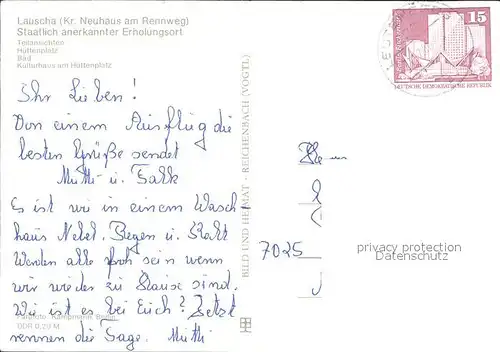 Lauscha (Kr. Neuhaus am Rennweg)
Staatlich anerkannter Erholungsort
Teilansichten
Hüttenplatz
Bad
Kulturhaus am Hüttenplatz
15
DEUTSCHE DEMOKRATISCHE REPUBLIK
Ihr Lieben!
Von einem Ausflug die
besten Grüße sendet
Mutti u. Falk
Es ist wie in einem Wasch-
haus Nebel. Regen u. Kalt
Werden alle froh sein wenn
wir wieder zu Hause sind.
Wie ist es bei Euch? Jetzt
rennen die Tage. Mutti
BILD UND HEIMAT · REICHENBACH (VOGTL)
7025
privacy protection
Datenschutz
DDR 0,20 M